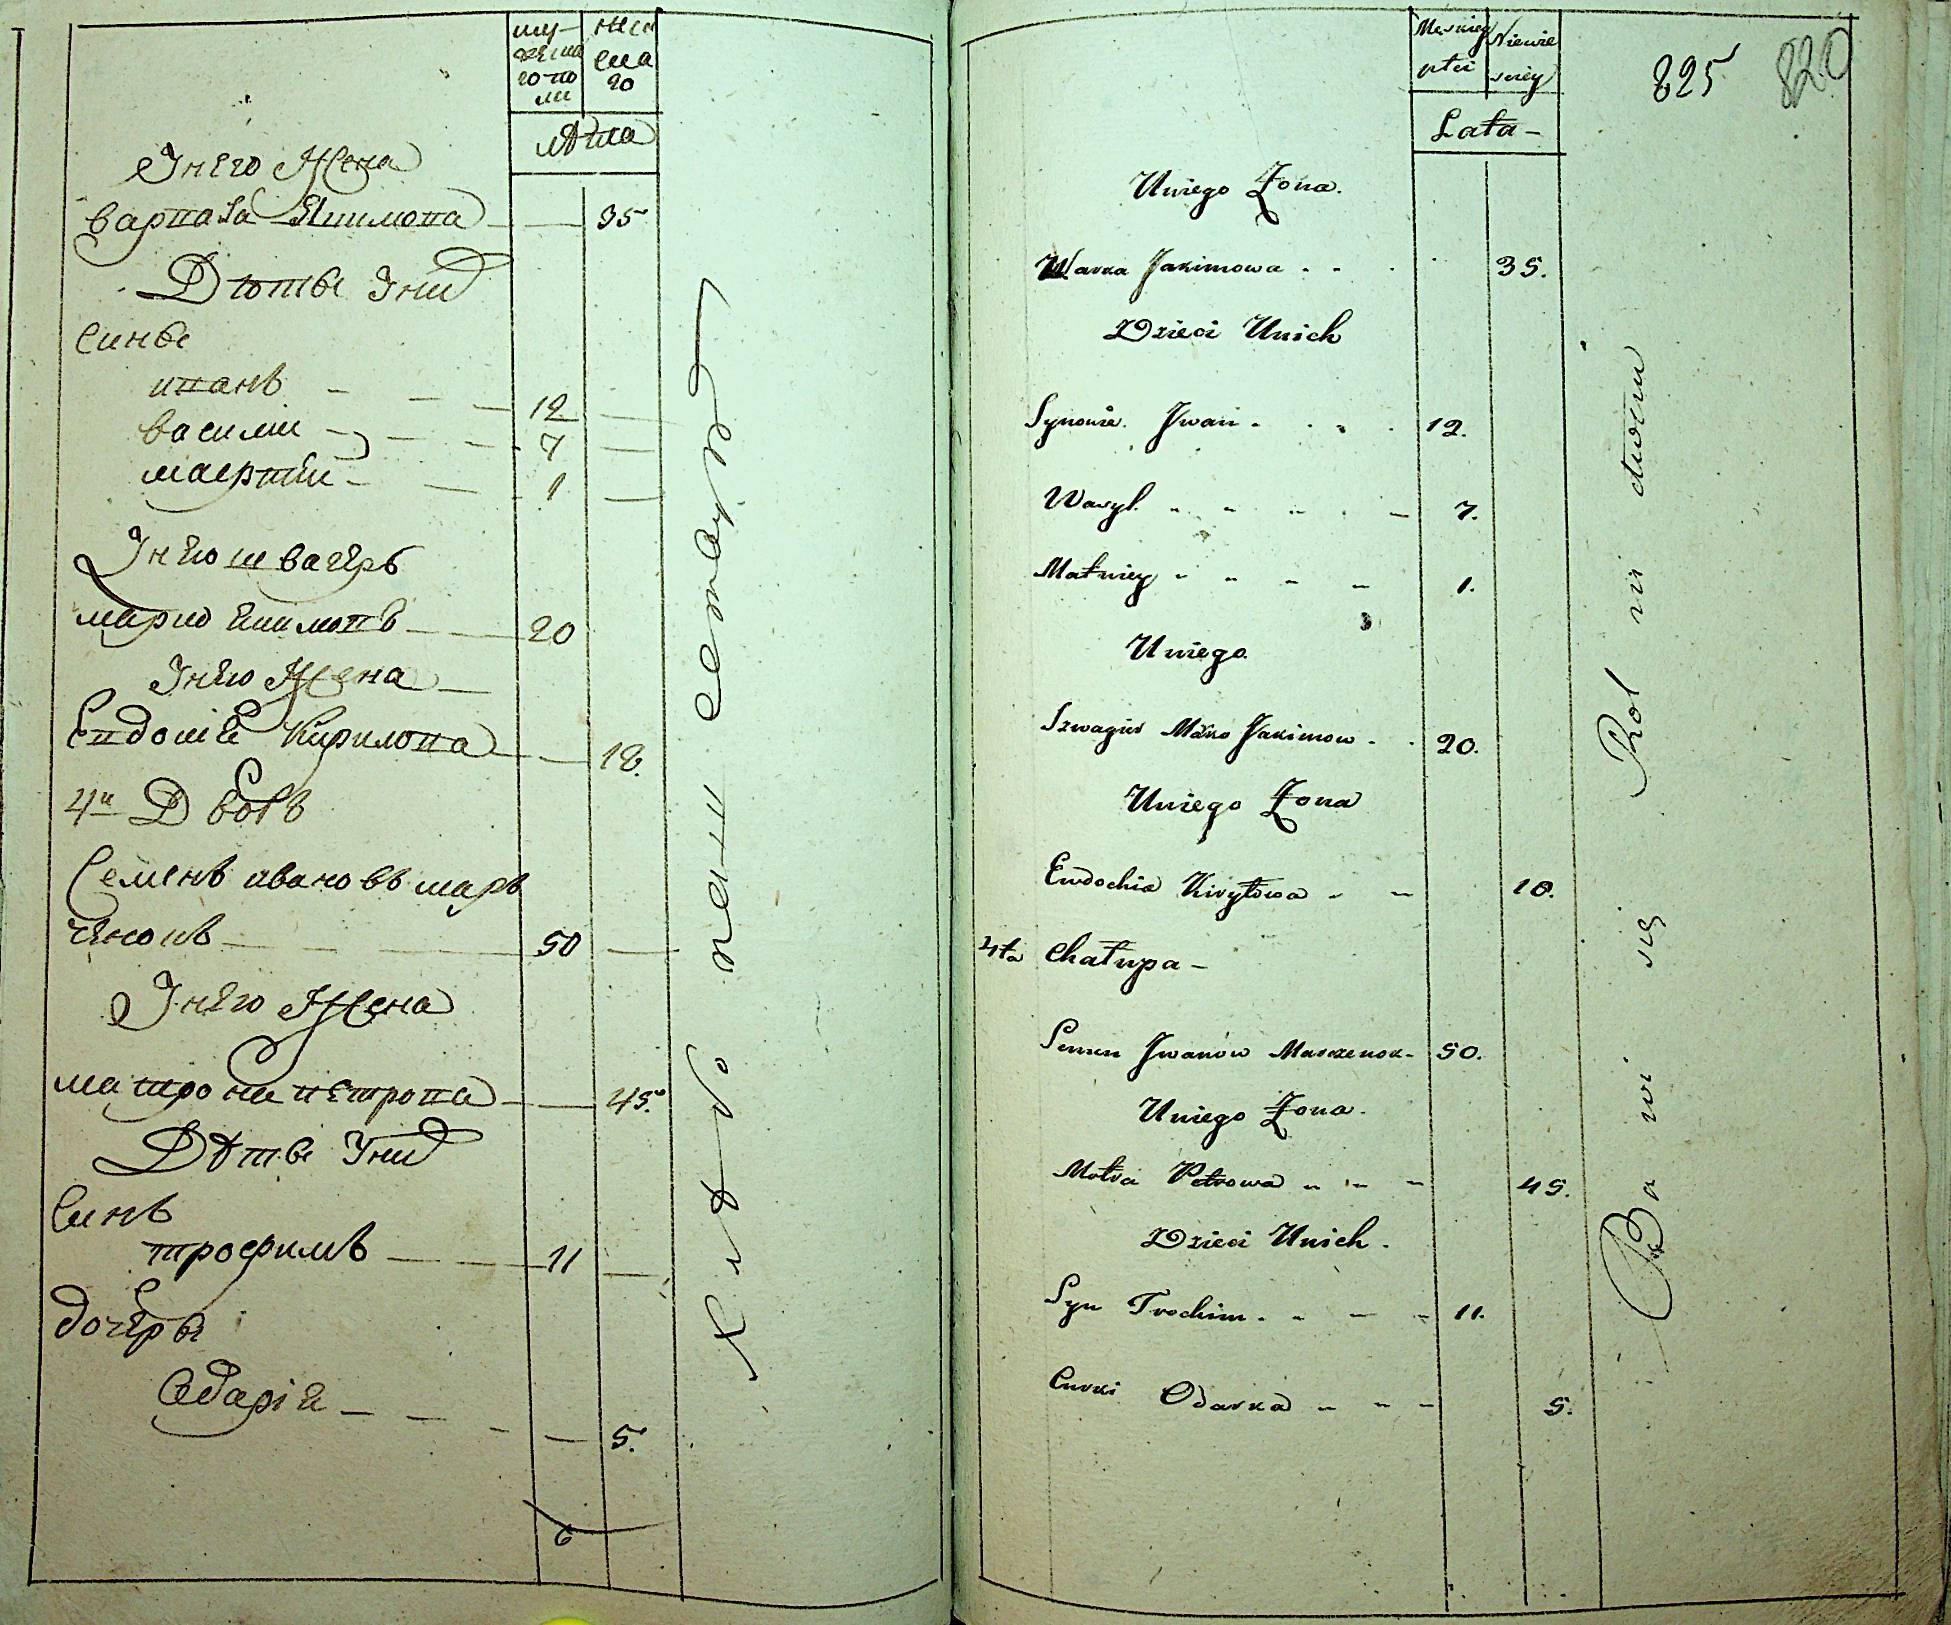 муження го поли
женска го
Лѣта
Унего Жена
Варвава Якимова 35
Дѣтье Уних
Синье
иванъ 12
василий 7
матфий 1
Унего швагеръ
марко екимовъ 20
Унего Жена
Евдошіе Кирилова 18.
4и Дворъ
Семенъ ивановъ мар
ченокъ 50
Унего Жена
матрона петрова 45.
Дѣтье Уних
Синъ
трофимъ 11
дочерье
Одаріе 5.
6
825 820
Męskiey płci
Niewieściey
Lata
Uniego Żona.
Warka Jakimowa 35.
Dzieci Unich
Synowie. Jwan 12.
Wasyl. 7.
Matwiey 1.
Uniego
Szwagier Marko Jakimow 20.
Uniego Żona
Ewdochia Kiryłowa 18.
4ta Chałupa
Semen Jwanow Marczenok 50.
Uniego Żona.
Motra Petrowa 45.
Dzieci Unich.
Syn Trochim. 11.
Curki Odarka 5.
Bawi się Rolnictwem